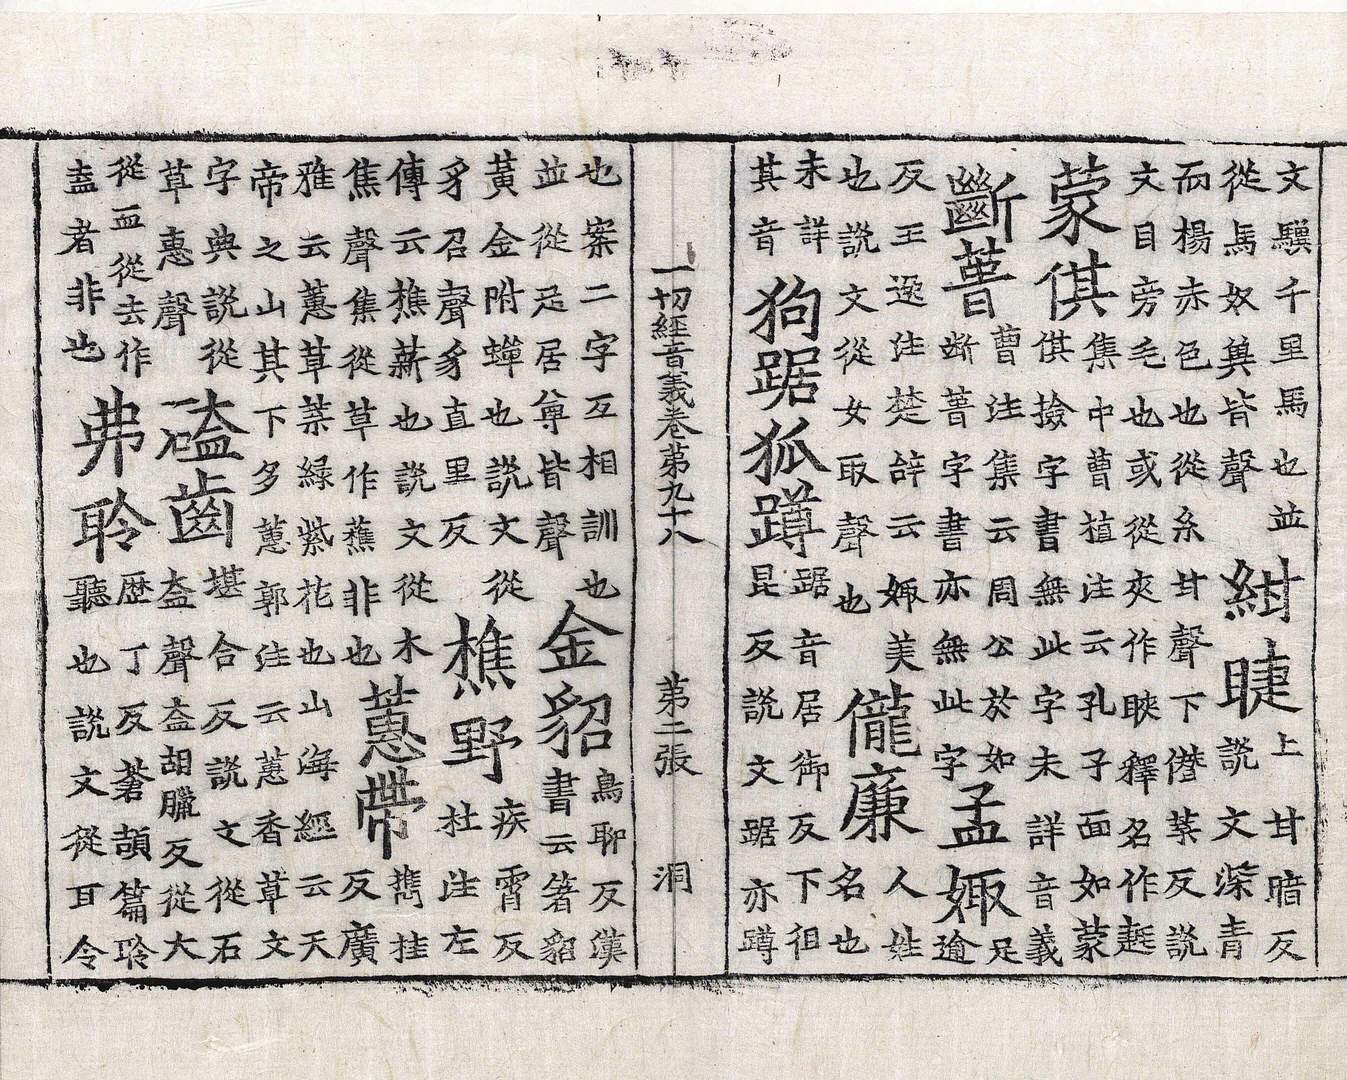 文驥千里馬也並
從馬奴兾皆聲
紺睫
上甘暗反
說文深青
而楊赤色也從糸甘聲下僣葉反說
文目旁毛也或從夾作䀹釋名作
蒙倛
焦中曹植注云孔子面如蒙
倛撿字書無此字未詳音義
斷菷
曹注集云周公於如
斷菷字書亦無此字
孟娵
足
逾
反王逸注楚辝云娵美
也說文從女取聲也
儱廉
人姓
名也
未詳
其音
狗踞狐蹲
踞音居御反下徂
昆反說文踞亦蹲
一切經音義卷第九十八 第二張 洞
也案二字互相訓也
並從足居尊皆聲
金貂
鳥聊反漢
書云箸貂
黃金附蟬也說文從
豸召聲豸直里反
樵野
疾霄反
杜注左
傳云樵薪也說文從木
焦聲集從草作蕉非也
蕙帶
攜桂
反廣
雅云蕙草葉緑紫花也山海經云天
帝之山其下多蕙郭注云蕙香草文
字典說從
草惠聲
磕齒
堪合反說文從石
盍聲盍胡臘反從大
從血從去作
盍者非也
弗聆
歴丁反蒼頡篇聆
聽也說文從耳令